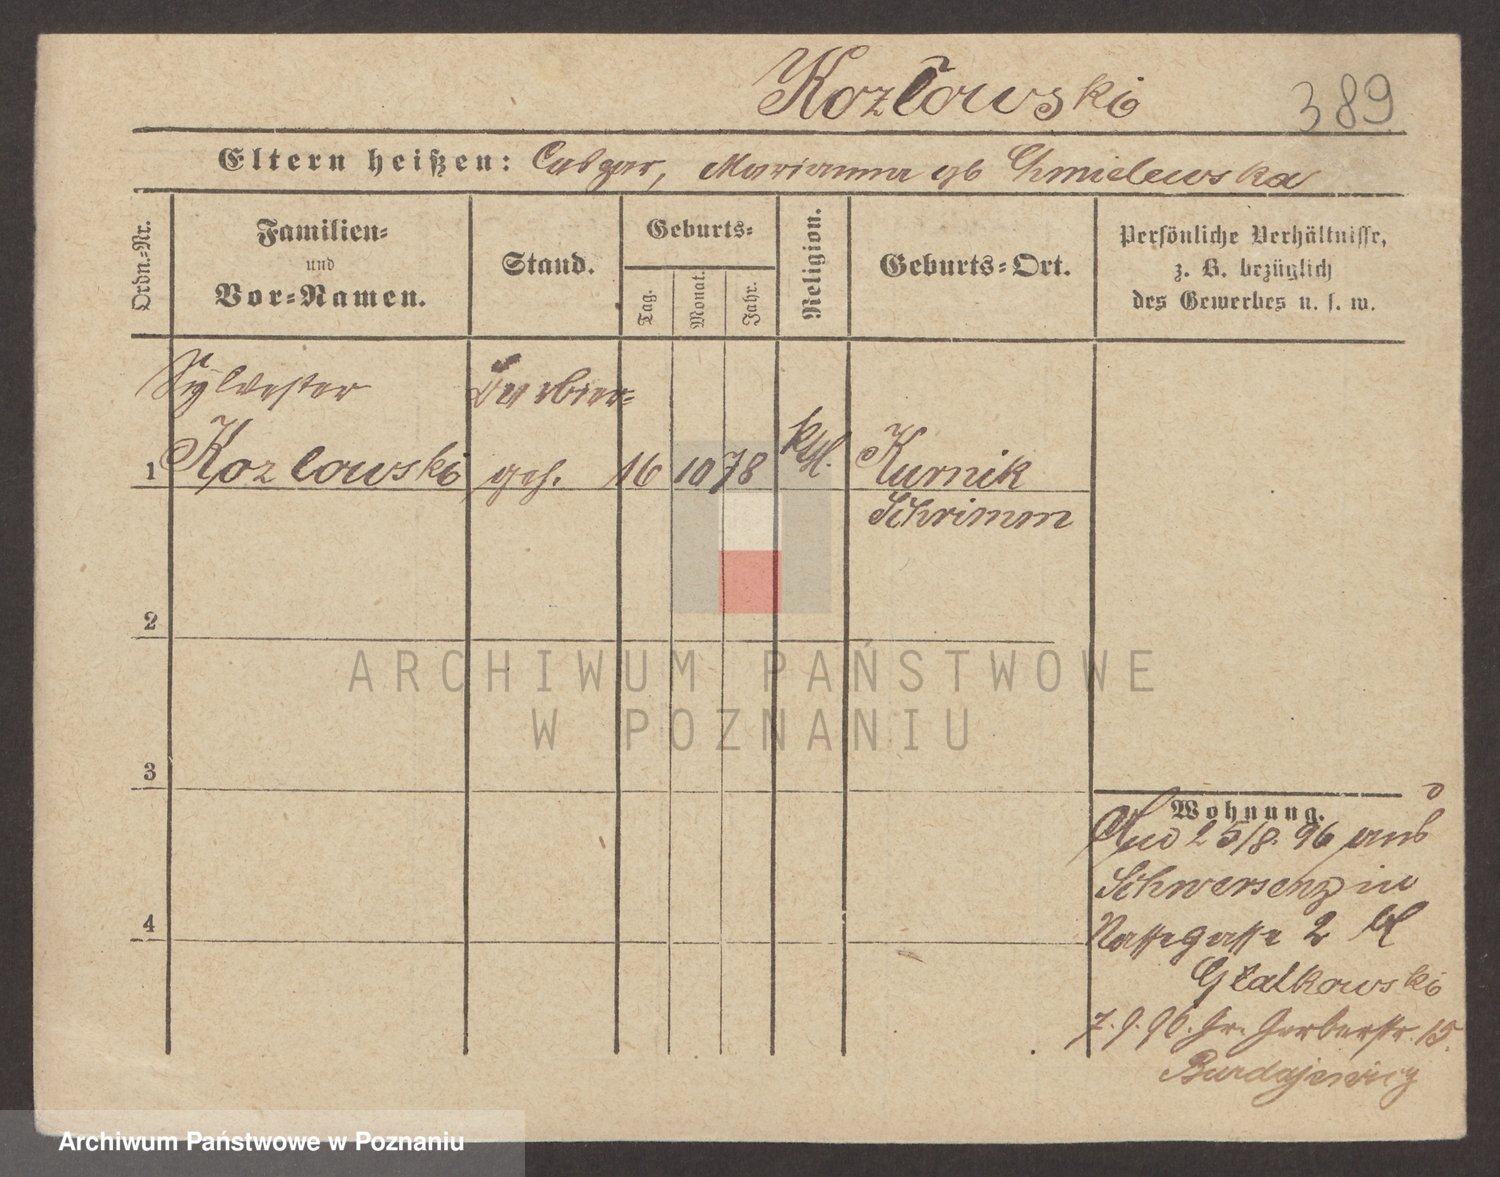 Kozłowski
389
Eltern heißen: Casper, Marianna gb Chmielewska
Ordn.-Nr.
Familien-
und
Vor-Namen.
Stand.
Geburts-
Tag.
Monat.
Jahr.
Religion.
Geburts-Ort.
Persönliche Verhältnisse,
z. B. bezüglich
des Gewerbes u. s. w.
Sylvester
Barbier-
1 Kozlowski geh. 16 10 78 ktl. Kurnik
Schrimm
2
3
4
Wohnung.
25/8. 96 aus
Schwersenz in
Nassegasse 2 bl
Gralkowski
7.9.96. Gr. Gerberstr. 15.
Burdajewicz
ARCHIWUM PAŃSTWOWE
W POZNANIU
Archiwum Państwowe w Poznaniu